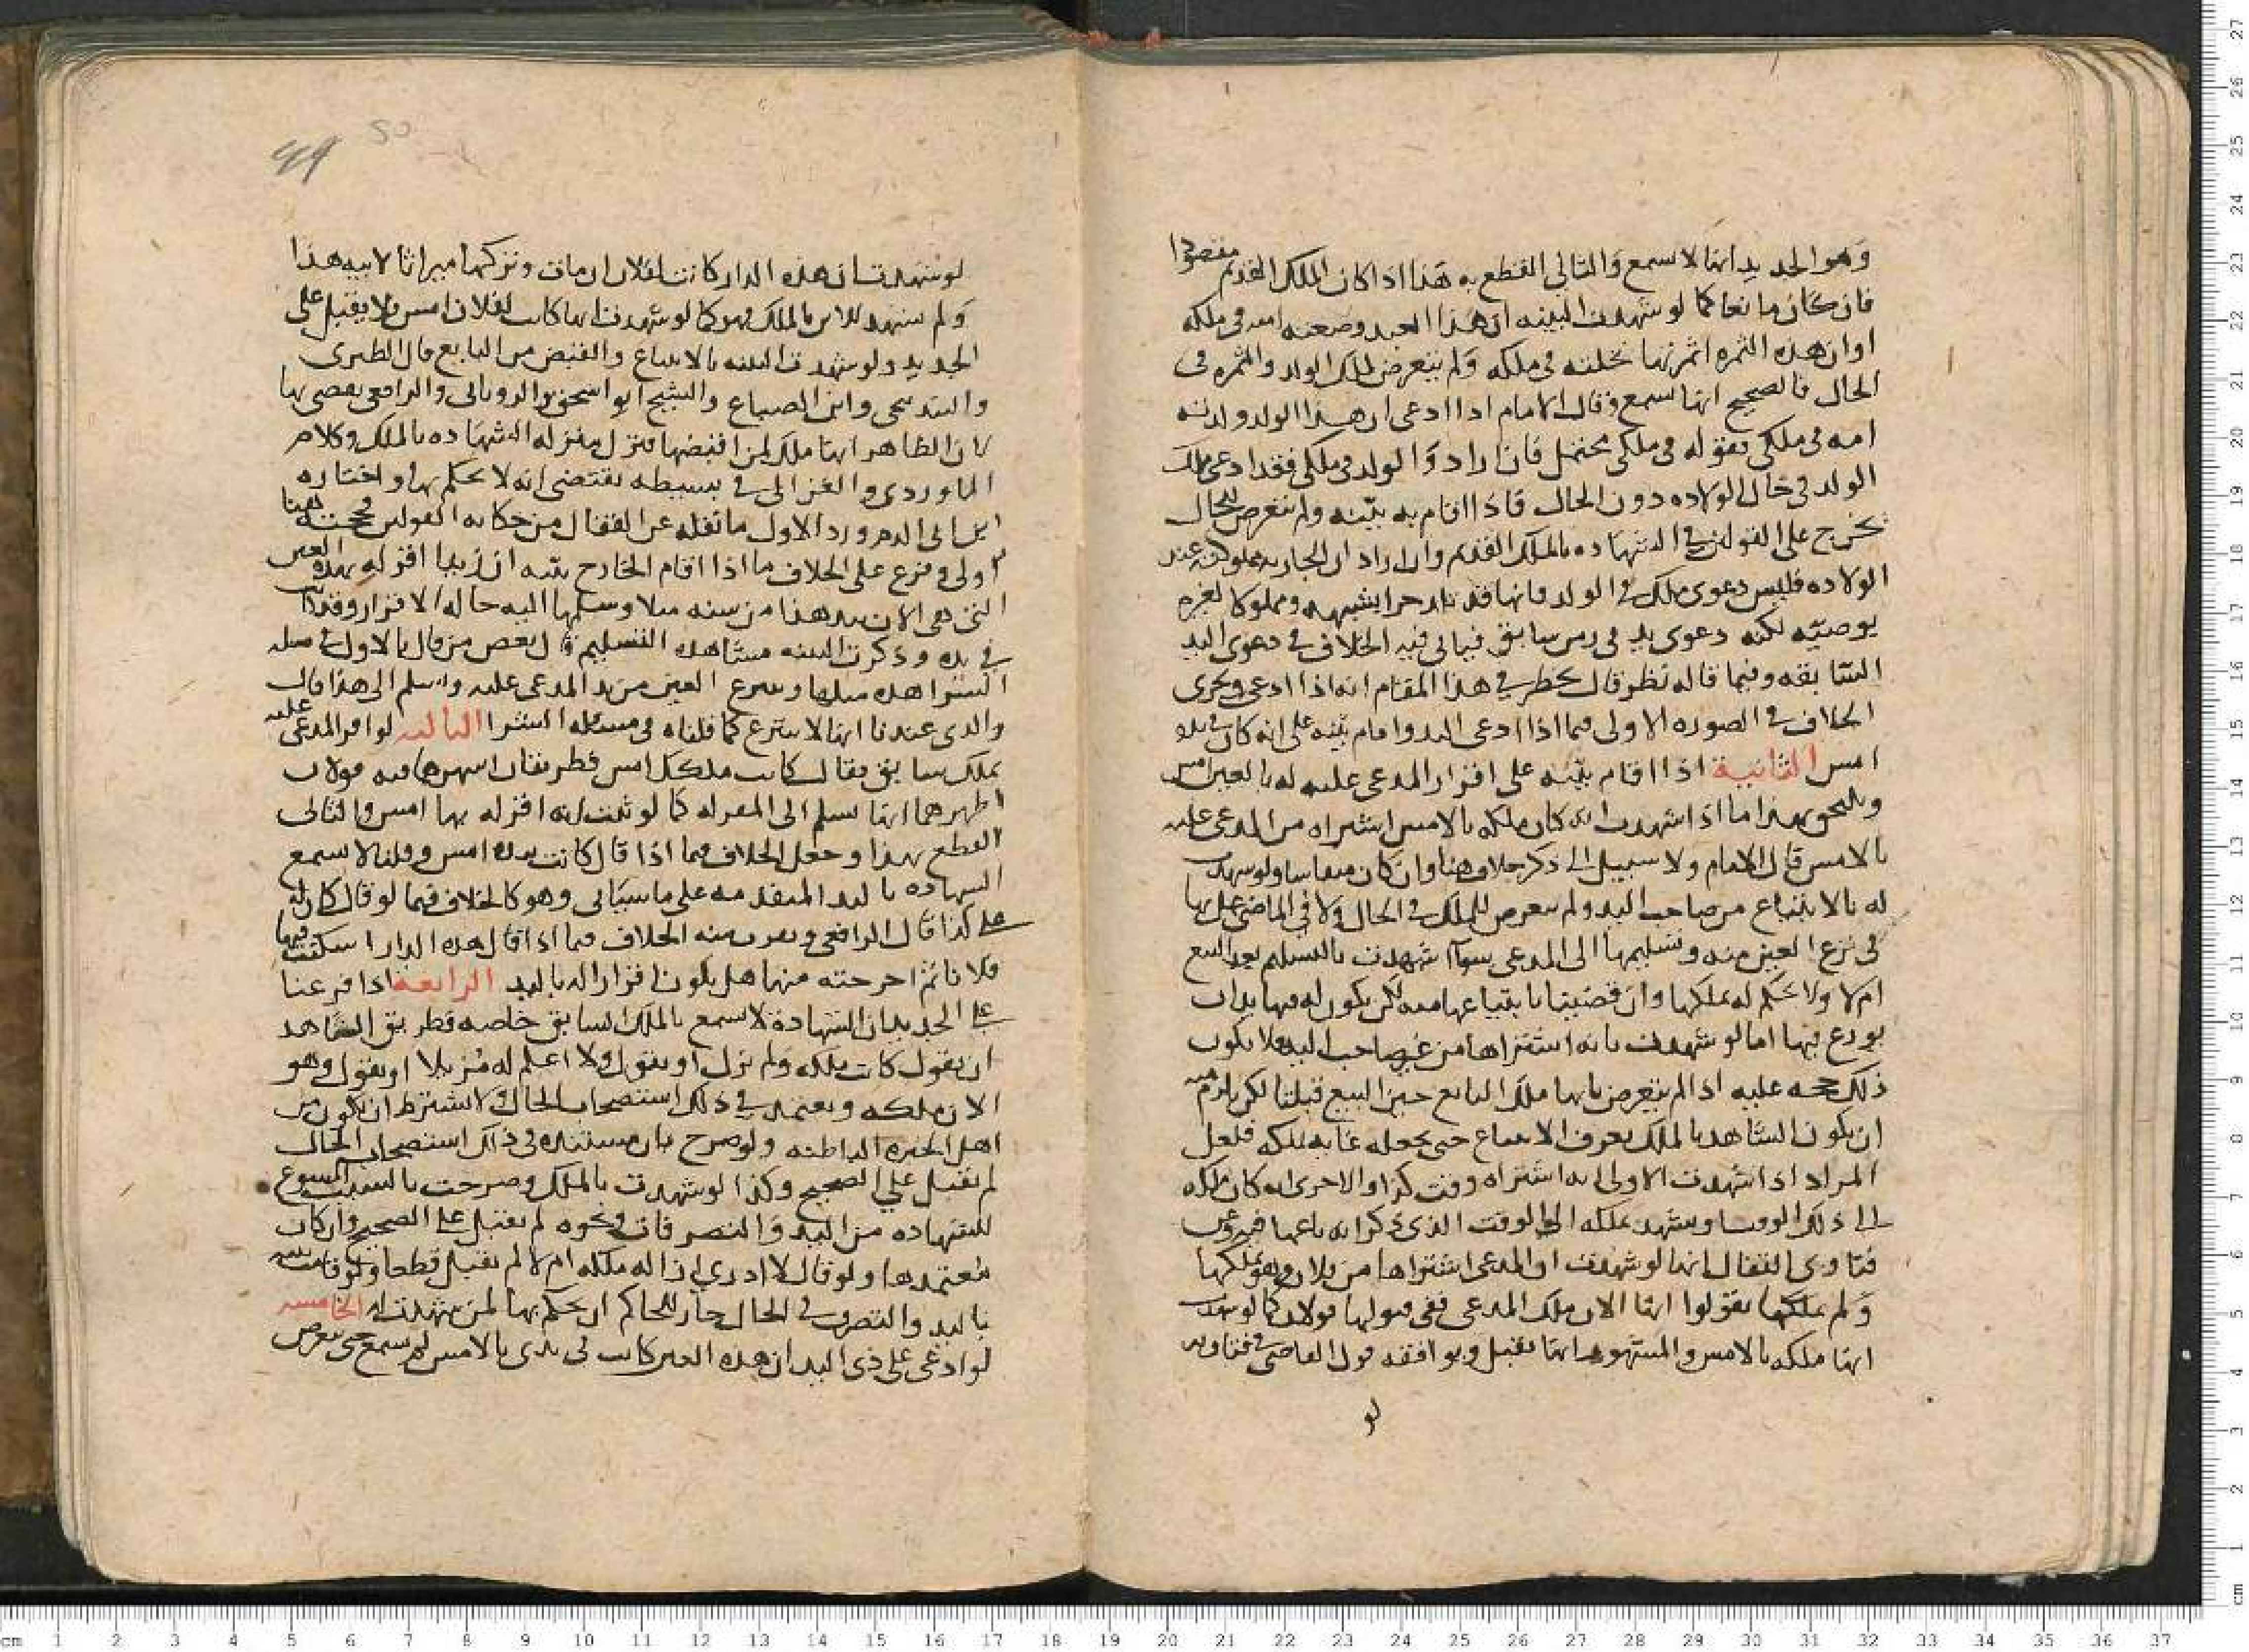 وهو الجديد انها لا تسمع والثاني القطع به هذا اذا كان الملك القديم مقصودا
فان كان مانعا كما لو شهدت البينه ان هذا العبد وضعته امه في ملكه
او ان هذه الثمره اثمرتها نخلته في ملكه ولم يتعرض لملك الولد والثمره في
الحال فالصحيح انها تسمع وقال الامام اذا ادعى ان هذا الولد ولدته
امه في ملكي فقوله في ملكي محتمل فان اراد والولد في ملكي فقد ادعى ملك
الولد في حال الولاده دون الحال فاذا اقام به بينه ولم يتعرض للحال
تخرج على القولين في الشهاده بالملك القديم وان اراد ان الجاريه مملوكته عند
الولاده فليس دعوى ملك في الولد فانها قد تلد حرا بشبهه ومملوكا لغيره
بوصيه لكنه دعوى يد في زمن سابق فياتي فيه الخلاف في دعوى اليد
السابقه وفيما قاله نظر قال يخطر في هذا المقام انه اذا ادعى وجرى
الخلاف في الصوره الاولى فيما اذا ادعى اليد واقام بينه على انه كان في يده
امس الثانية اذا اقام بينه على اقرار المدعى عليه له بالعين امس
ويلتحق بهذا ما اذا شهدت انه كان ملكه بالامس اشتراه من المدعى عليه
بالامس قال الامام ولا سبيل الى ذكر خلاف هنا وان كان منقاسا ولو شهدت
له بالابتياع من صاحب اليد ولم تتعرض للملك في الحال ولا في الماضي عمل بها
في نزع العين منه وتسليمها الى المدعى سوآ شهدت بالتسليم بعد البيع
ام لا ولا يحكم له بملكها وان قضينا بابتياعها منه لكن يكون له فيها يدان
نوزع فيها اما لو شهدت بانه اشتراها من غير صاحب اليد فلا يكون
ذلك حجه عليه اذا لم يتعرض بانها ملك البايع حين البيع قبلنا لكن يلزم منه
ان يكون الشاهد بالملك يعرف الابتياع حتى يجعله غايه لملكه فلعل
المراد اذا شهدت الاولى انه اشتراه وقت كذا والاخرى انه كان ملكه
الى ذلك الوقت او شهد بملكه الى الوقت الذي ذكر انه باعها فيه وعن
فتاوى القفال انها لو شهدت ان المدعى اشتراها من فلان وهو يملكها
ولم يقولوا انها الان ملك المدعي ففي قبولها قولان كما لو شهدت
انها ملكه بالامس والمشهور انها تقبل ويوافقه قول القاضي في فتاويه
لو
لو شهدت ان هذه الدار كانت لفلان ان مات وتركها ميراثا لابيه هذا
ولم تشهد للابن بالملك فهو كما لو شهدت انها كانت لفلان امس فلا يقبل على
الجديد ولو شهدت البينه بالابتياع والقبض من البايع قال الطبرى
والبندنيجي وابن الصباغ والشيخ ابو اسحق والروياني والرافعي يقضى بها
لان الظاهر انها ملك لمن اقبضها فتنزل منزله الشهاده بالملك وكلام
الماوردي والغزالي في بسيطه يقتضي انه لا يحكم بها واختاره
ابن ابي الدم ورد الاول ما نقله عن القفال من حكايه القولين فيه هنا
اولى وفرع على الخلاف ما اذا اقام الخارج بينه ان زيدا اقر له بهذه العين
التي هي الان بيد هذا من سنه مثلا وسلمها اليه حاله الاقرار وقد
في يده وذكرت البينه مشاهده التسليم قال بعض من قال بالاول في مسله
الشرا هذه مثلها وتنزع العين من يد المدعى عليه وتسلم الى هذا قال
والذي عندنا انها لا تنزع كما قلناه في مسئله الشرا الثالثه لو اقر المدعى عليه
بملك سابق فقال كانت ملكك امس فطريقان اشهرهما فيه قولان
اظهرهما انها تسلم الى المقر له كما لو ثبت انه اقر له بها امس والثاني
القطع بهذا وجعل الخلاف فيما اذا قال كانت بيده امس وقلنا لا تسمع
الشهاده باليد المتقدمه على ما سياتي وهو كالخلاف فيما لو قال كان له
على كذا قال الرافعي ويقرب منه الخلاف فيما اذا قال هذه الدار اسكنت فيها
فلانا ثم اخرجته منها هل يكون اقرارا له باليد الرابعه اذا فرعنا
على الجديد بان الشهادة لا تسمع بالملك السابق خاصه فطريق الشاهد
ان يقول كانت ملكه ولم تزل او يقول ولا اعلم له مزيلا او يقول وهو
الان ملكه ويعتمد في ذلك استصحاب الحال ولا يشترط ان يكون من
اهل الخبره الباطنه ولو صرح بان مستنده في ذلك استصحاب الحال
لم يقبل على الصحيح وكذا لو شهدت بالملك وصرحت بالسبب المسوغ
للشهاده من اليد والتصرفات ونحوه لم يقبل على الصحيح وان كان
معتمدها ولو قال لا ادري ازاله ملكه ام لا لم يقبل قطعا ولو قامت بينه
باليد والتصرف في الحال جاز للحاكم ان يحكم بها لمن شهدت له الخامسه
لو ادعى على ذي اليد ان هذه العين كانت في يدي بالامس لم تسمع حتى يتعرض